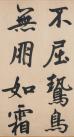 不屈鷙鳥
無朋如霜